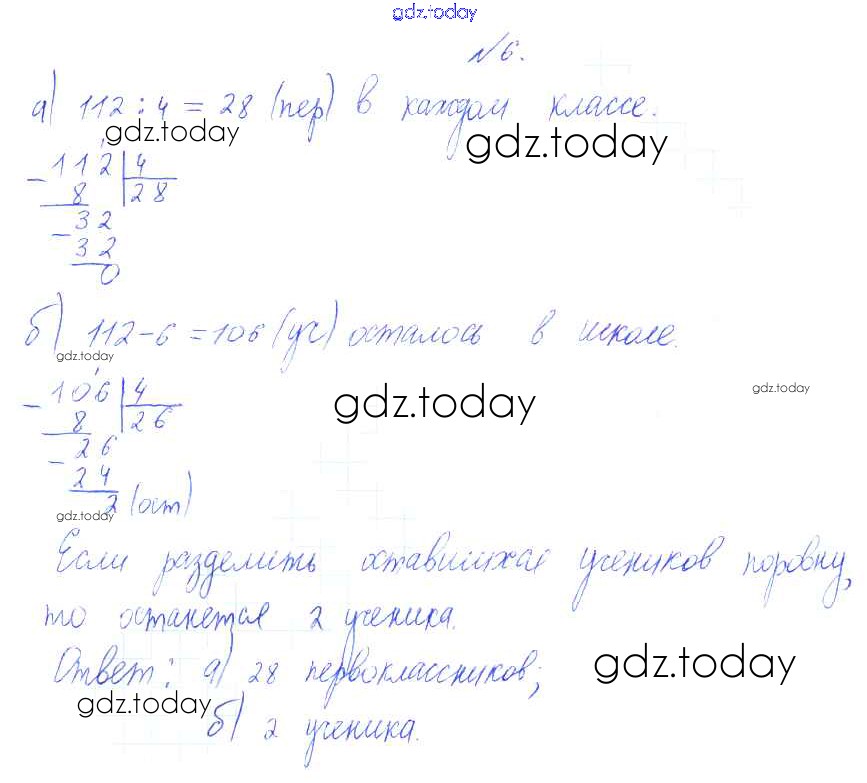 gdz.today
№6.
а) 112 : 4 = 28 (пер) в каждом классе.
gdz.today
gdz.today
- 112 | 4
8 | 28
- 32
32
0
б) 112 - 6 = 106 (уч) осталось в школе.
gdz.today
gdz.today
gdz.today
- 106 | 4
8 | 26
- 26
24
2 (ост)
gdz.today
Если разделить оставшихся учеников поровну,
то останется 2 ученика.
Ответ: а) 28 первоклассников;
gdz.today
gdz.today
б) 2 ученика.